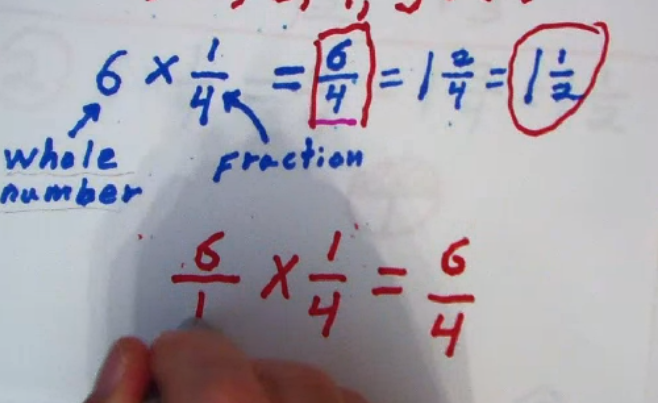 6 × 1/4 = 6/4 = 1 2/4 = 1 1/2
whole
number
Fraction
6/1 × 1/4 = 6/4